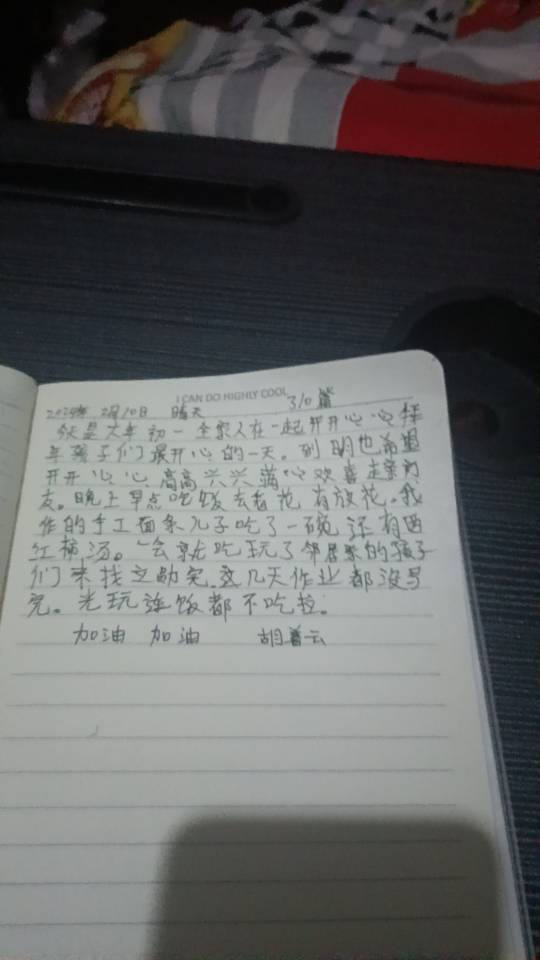 I CAN DO HIGHLY COOL
2024年 2月10日 晴天 310篇
今天是大年初一全家人在一起开开心心拜
年孩子们最开心的一天。到明也希望
开开心心高高兴兴满心欢喜走亲朋
友。晚上早点吃饭去看花有放花。我
作的手工面条儿子吃了一碗还有西
红柿汤。一会就吃玩了邻居家的孩子
们来找之勋完这几天作业都没写
完。光玩连饭都不吃拉。
加油 加油 胡着云